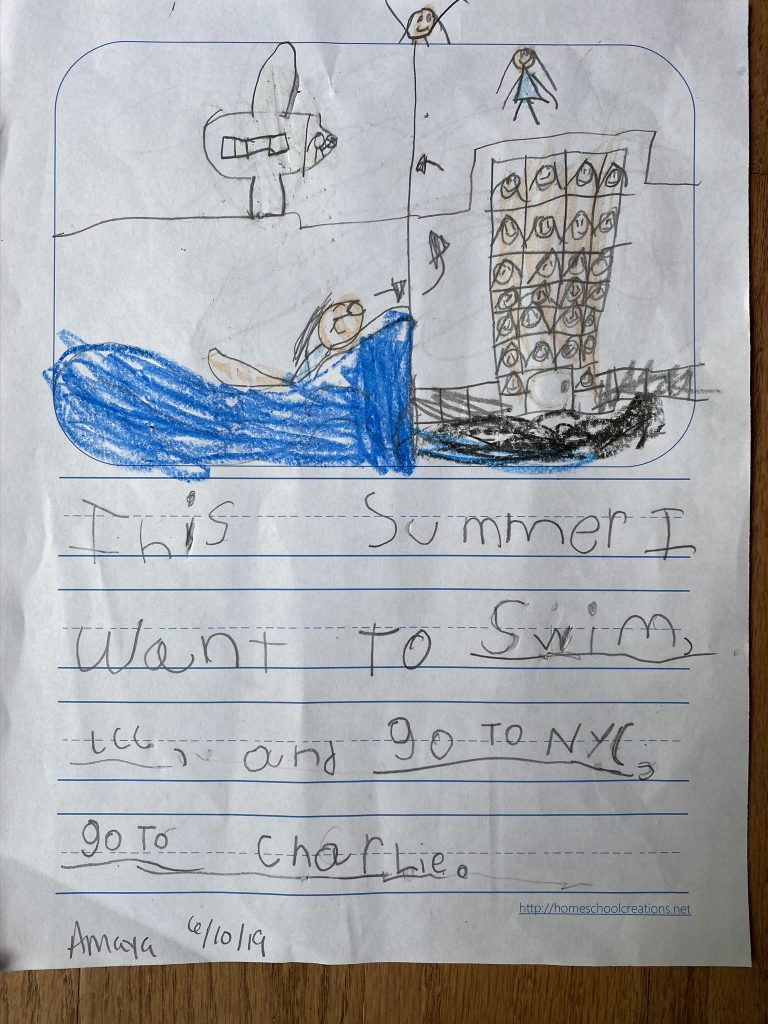 This Summer I
want to Swim,
and go To NYC,
go To CharLie.
http://homeschoolcreations.net
Amaya 6/10/19